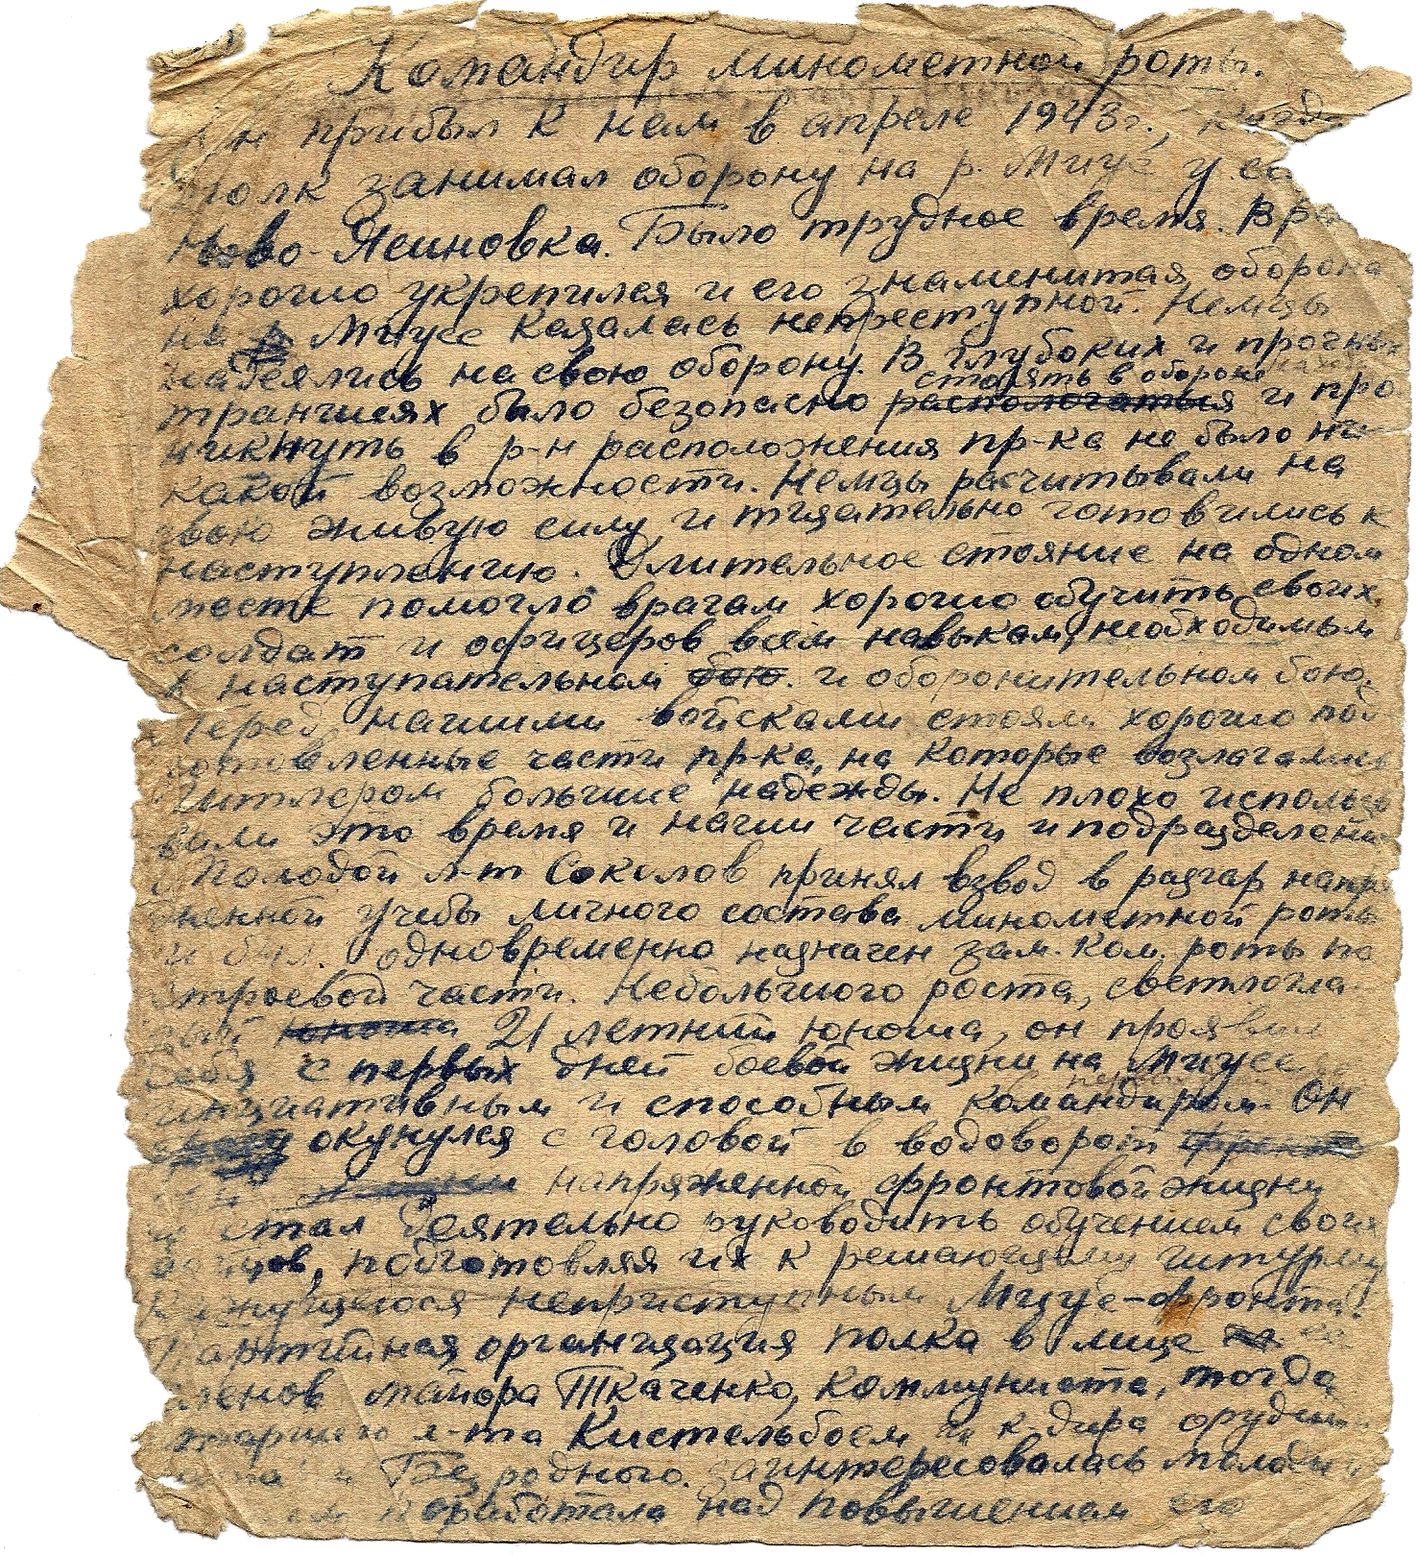 Командир минометной роты.
Он прибыл к нам в апреле 1943 г., когда
полк занимал оборону на р. Миус у
Ново-Ясиновка. Было трудное время. Враг
хорошо укрепился и его знаменитая оборона
на Миусе казалась непреступной. Немцы
надеялись на свою оборону. В глубоких и прочных
стоять в обороне
траншеях было безопасно распологаться и про
никнуть в р-н расположения пр-ка не было ни
какой возможности. Немцы расчитывали на
свою живую силу и тщательно готовились к
наступлению. Длительное стояние на одном
месте помогло врагам хорошо обучить своих
солдат и офицеров всем навыкам, необходимым
к наступательном бою. и оборонительном бою.
Перед нашими войсками стояли хорошо под
готовленные части пр-ка, на которые возлагались
Гитлером большие надежды. Не плохо использо
вали это время и наши части и подразделения
Молодой л-т Соколов принял взвод в разгар напря
женной учебы личного состава минометной роты
и был одновременно назначен зам. ком. роты по
строевой части. Небольшого роста, светлогла
зый юноша 21 летний юноша, он проявил
себя с первых дней боевой жизни на Миусе
инициативным и способным командиром. Он
окунулся с головой в водоворот фронто
жизни напряженной фронтовой жизни
и стал деятельно руководить обучением своих
бойцов, подготовляя их к решающему штурму
кажущегося неприступным Миус-фронта.
Партийная организация полка в лице ее
членов майора Ткаченко, коммуниста, тогда
старшего л-та Кистельбоем и к-дира орудия
и Безродного. заинтересовалась молодым
поработала над повышением его